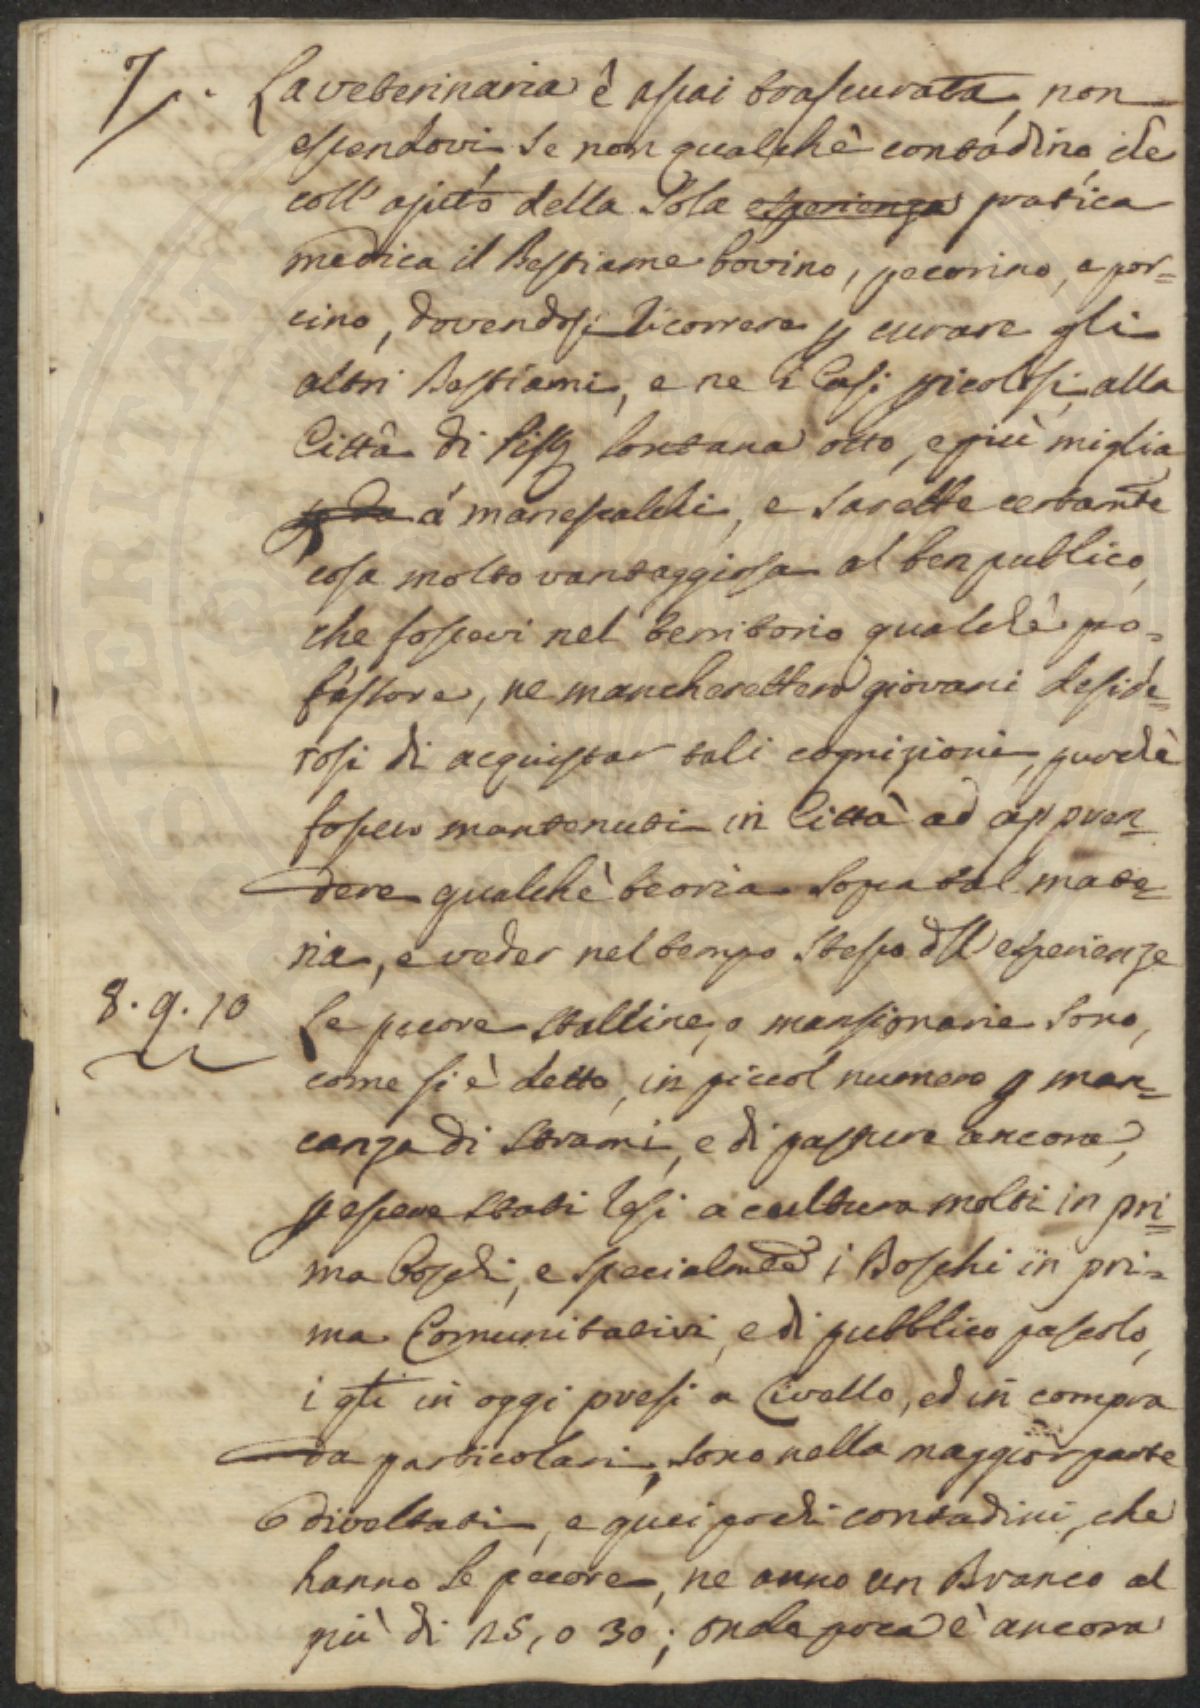 7. La veterinaria è assai trascurata, non
essendovi se non qualchè contadino che
coll' ajuto della sola esperienza pratica
medica il Bestiame bovino, pecorino, e por=
cino, dovendosi ricorrere p curare gli
altri Bestiami, e ne i Casi picolosi, alla
Città di lontana otto, e più miglia
a' manescalchi, e sarebbe certamte
cosa molto vantaggiosa al ben pubblico,
che fossevi nel territorio qualchè po=
fessore, ne mancherebbero giovani deside=
rosi di acquistar tali cognizioni, purchè
fossero mantenuti in Città ad appren=
dere qualchè teoria sopra tal mate=
ria, e veder nel tempo stesso dll' esperienze
8. 9. 10 Le pecore stalline, o mansionarie sono,
come si è detto, in piccol numero p man=
canza di strami, e di pasture ancora,
p essere stati lesi a cultura molti in pri=
ma boschi, e specialmte i Boschi in pri=
ma Comunitativi, e di pubblico pascolo,
i qli in oggi presi a Livello, ed in compra
da particolari, sono nella maggior parte
divoltati, e quei pochi contadini, che
hanno le pecore, ne anno un Branco al
più di 25, o 30; onde poca è ancora